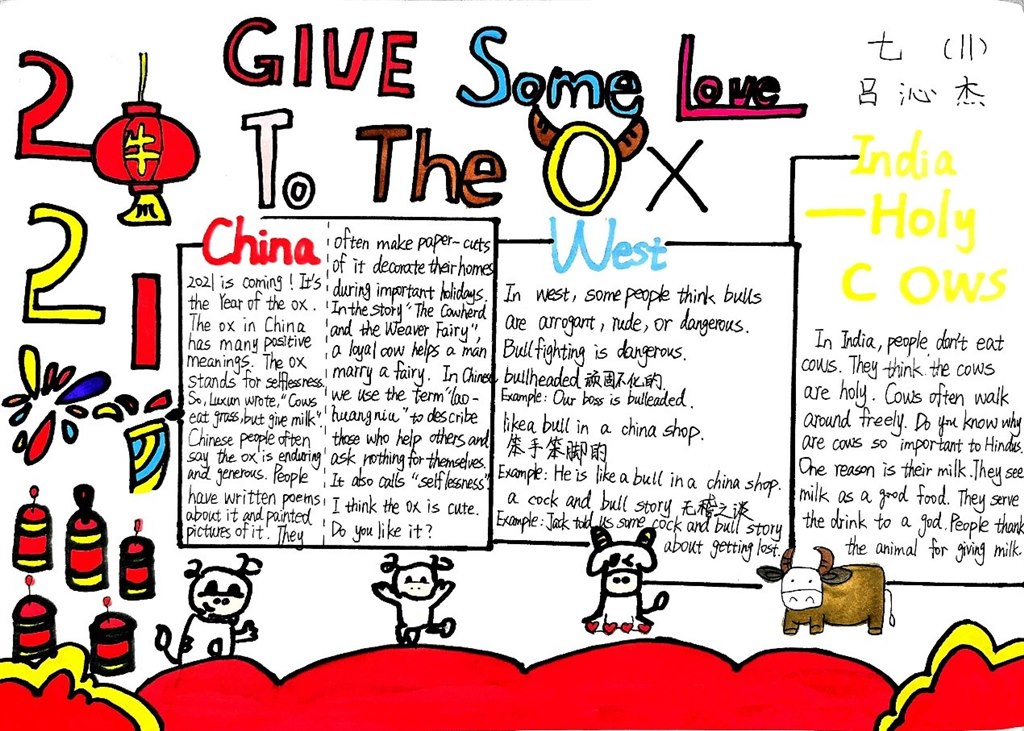 GIVE Some Love
To The OX
七 (11)
吕沁杰
2021
牛
China
2021 is coming! It's
the Year of the ox.
The ox in China
has many positive
meanings. The ox
stands for selflessness.
So, Luxun wrote, "Cows
eat grass, but give milk".
Chinese people often
say the ox is enduring
and generous. People
have written poems
about it and painted
pictures of it. They
often make paper-cuts
of it decorate their homes
during important holidays.
In the story "The Cowherd
and the Weaver Fairy",
a loyal cow helps a man
marry a fairy. In Chinese,
we use the term "lao-
huangniu" to describe
those who help others and
ask nothing for themselves.
It also calls "selflessness".
I think the ox is cute.
Do you like it?
West
In west, some people think bulls
are arrogant, rude, or dangerous.
Bullfighting is dangerous.
bullheaded 顽固不化的
Example: Our boss is bulleaded.
like a bull in a china shop.
笨手笨脚的
Example: He is like a bull in a china shop.
a cock and bull story 无稽之谈
Example: Jack told us some cock and bull story
about getting lost.
India
—Holy
Cows
In India, people don't eat
cows. They think the cows
are holy. Cows often walk
around freely. Do you know why
are cows so important to Hindus.
One reason is their milk. They see
milk as a good food. They serve
the drink to a god. People thank
the animal for giving milk.